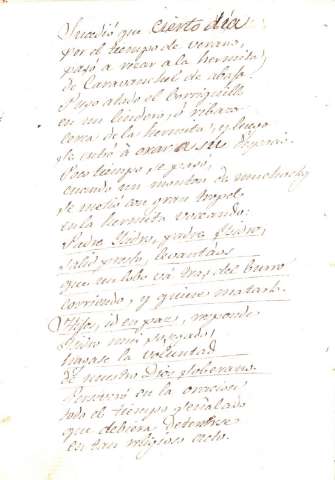 Sucedió que cierto día
por el tiempo de verano,
pasó á rezar a la hermita,
de Caravanchel de abajo
Puso atado el borriquillo
en un lindero, ó ribazo
cerca de la hermita, y luego
se entró á orar a su
Poco tiempo se pasó;
cuando un monton de muchachos
se metió con gran tropel
en la hermita voceando:
Padre Isidro, padre Isidro,
salid presto, levantaos
que un lobo vá tras del burro
corriendo, y quiere matarle.
Hijos, id en paz, responde
Isidro muy
hagase la voluntad
de nuestro Dios soberano.
Perseveró en la oracion
todo el tiempo señalado
que debiera detenerse
en tan religioso acto.